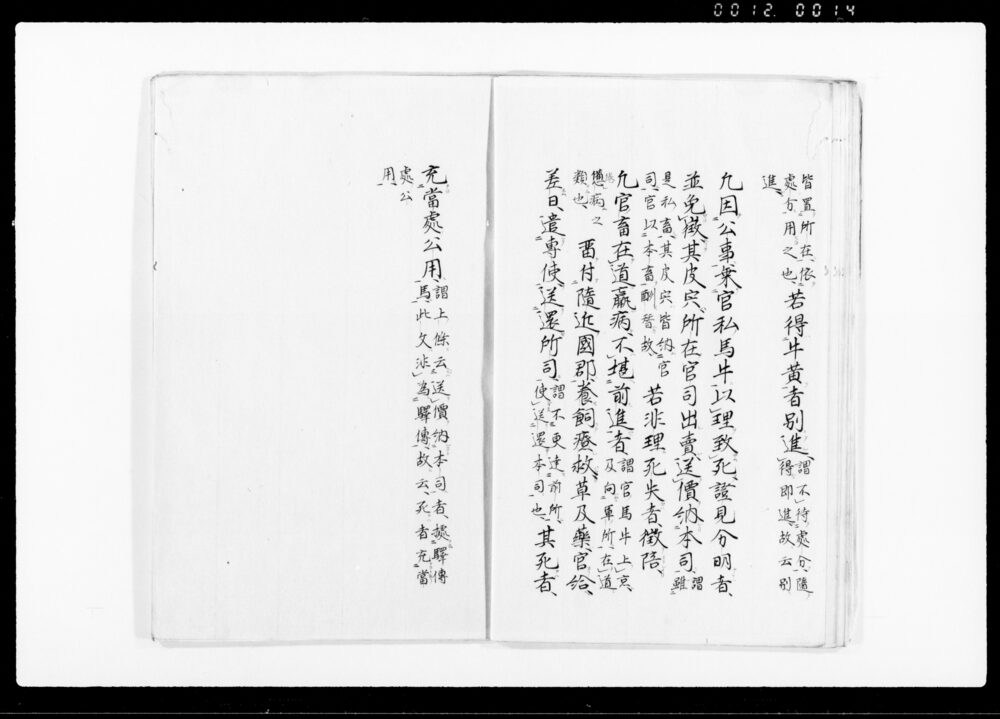 0012 0014
皆置所在依
處分用之也
若得牛黄者別進
謂不待處分隨
得即進故云別
進
凡因公事乗官私馬牛以理致死證見分明者
並免徴其皮宍所在官司出賣送價納本司
謂雖
是私畜其皮宍皆納官
司官以本畜酬替故
若非理死失者徴陪
凡官畜在道羸病不堪前進者
謂官馬牛上京
及向軍所在道
憊病之
類也
留付隨近國郡養飼療救草及藥官給
差日遣專使送還所司
謂不更達前所
使送還本司也
其死者
充當處公用
謂上條云送價納本司者據驛傳
馬此文非為驛傳故云死者充當
處公
用